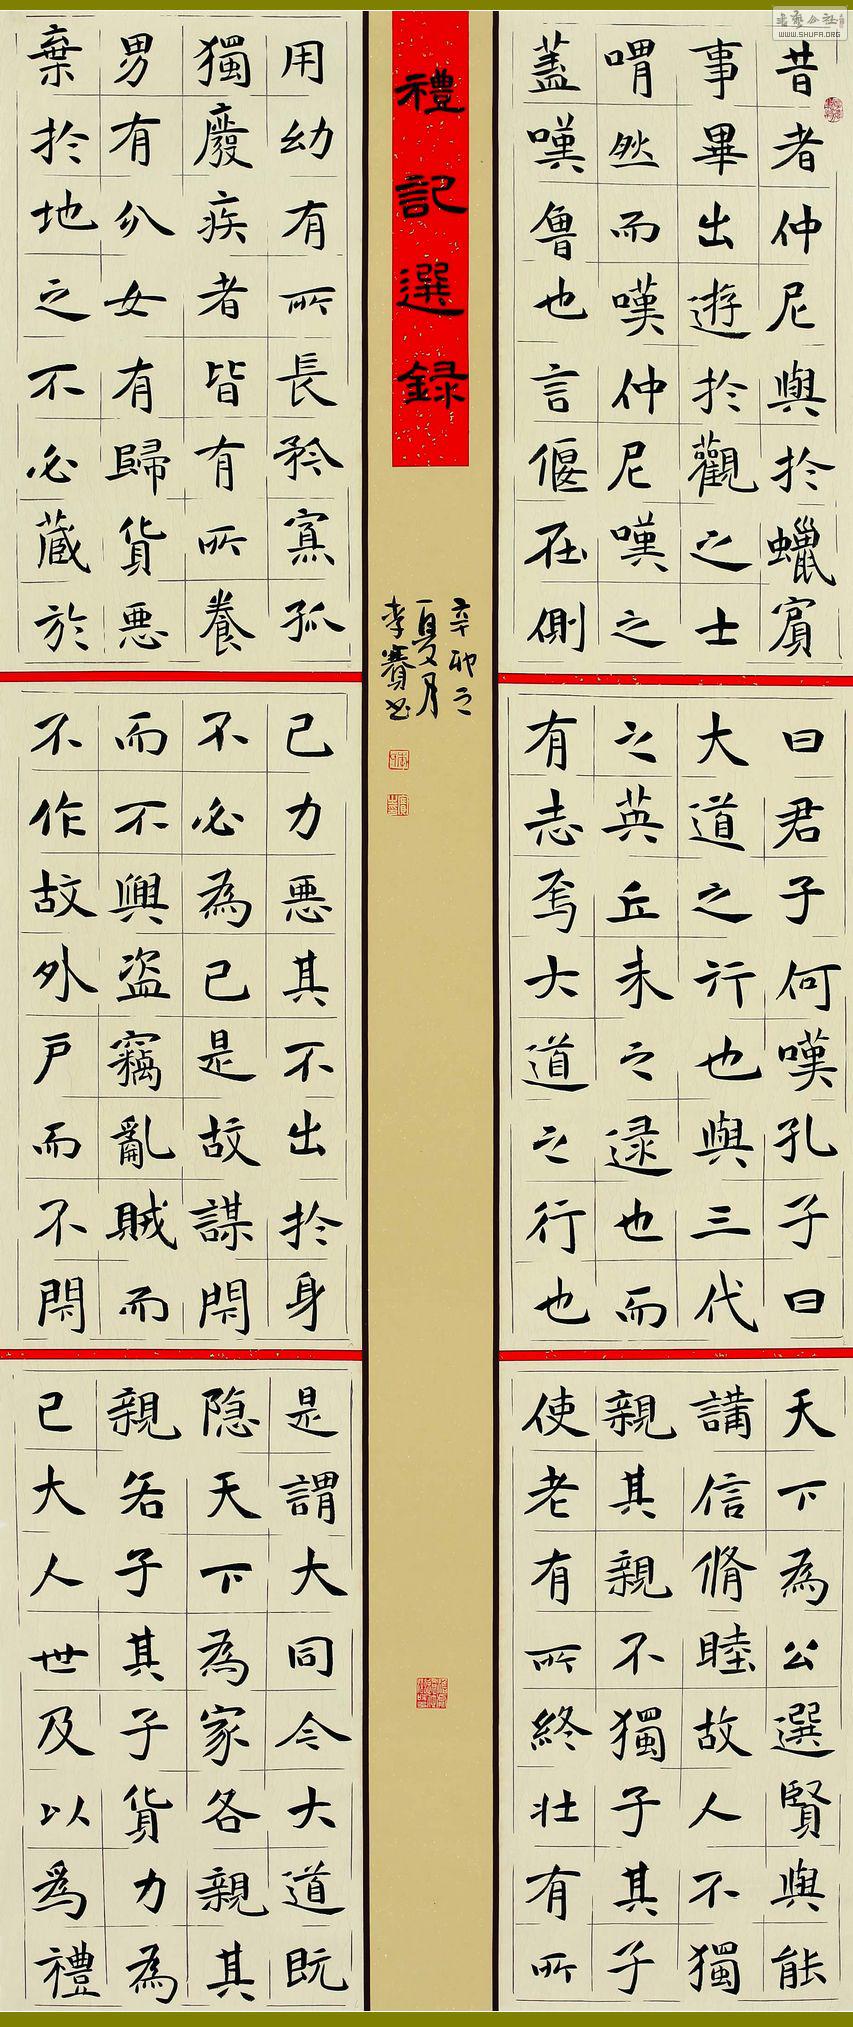 昔者仲尼與於蠟賓
事畢出遊於觀之士
喟然而嘆仲尼嘆之
蓋嘆魯也言偃在側
曰君子何嘆孔子曰
大道之行也與三代
之英丘未之逮也而
有志焉大道之行也
天下為公選賢與能
講信脩睦故人不獨
親其親不獨子其子
使老有所終壯有所
用幼有所長矜寡孤
獨廢疾者皆有所養
男有分女有歸貨悪
棄於地之不必蔵於
已力悪其不出於身
不必為已是故謀閇
而不興盜竊亂賊而
不作故外戶而不閇
是謂大同今大道既
隐天下為家各親其
親各子其子貨力為
已大人世及以為禮
禮記選録
辛卯之
夏月
李賽書
WWW.SHUFA.ORG